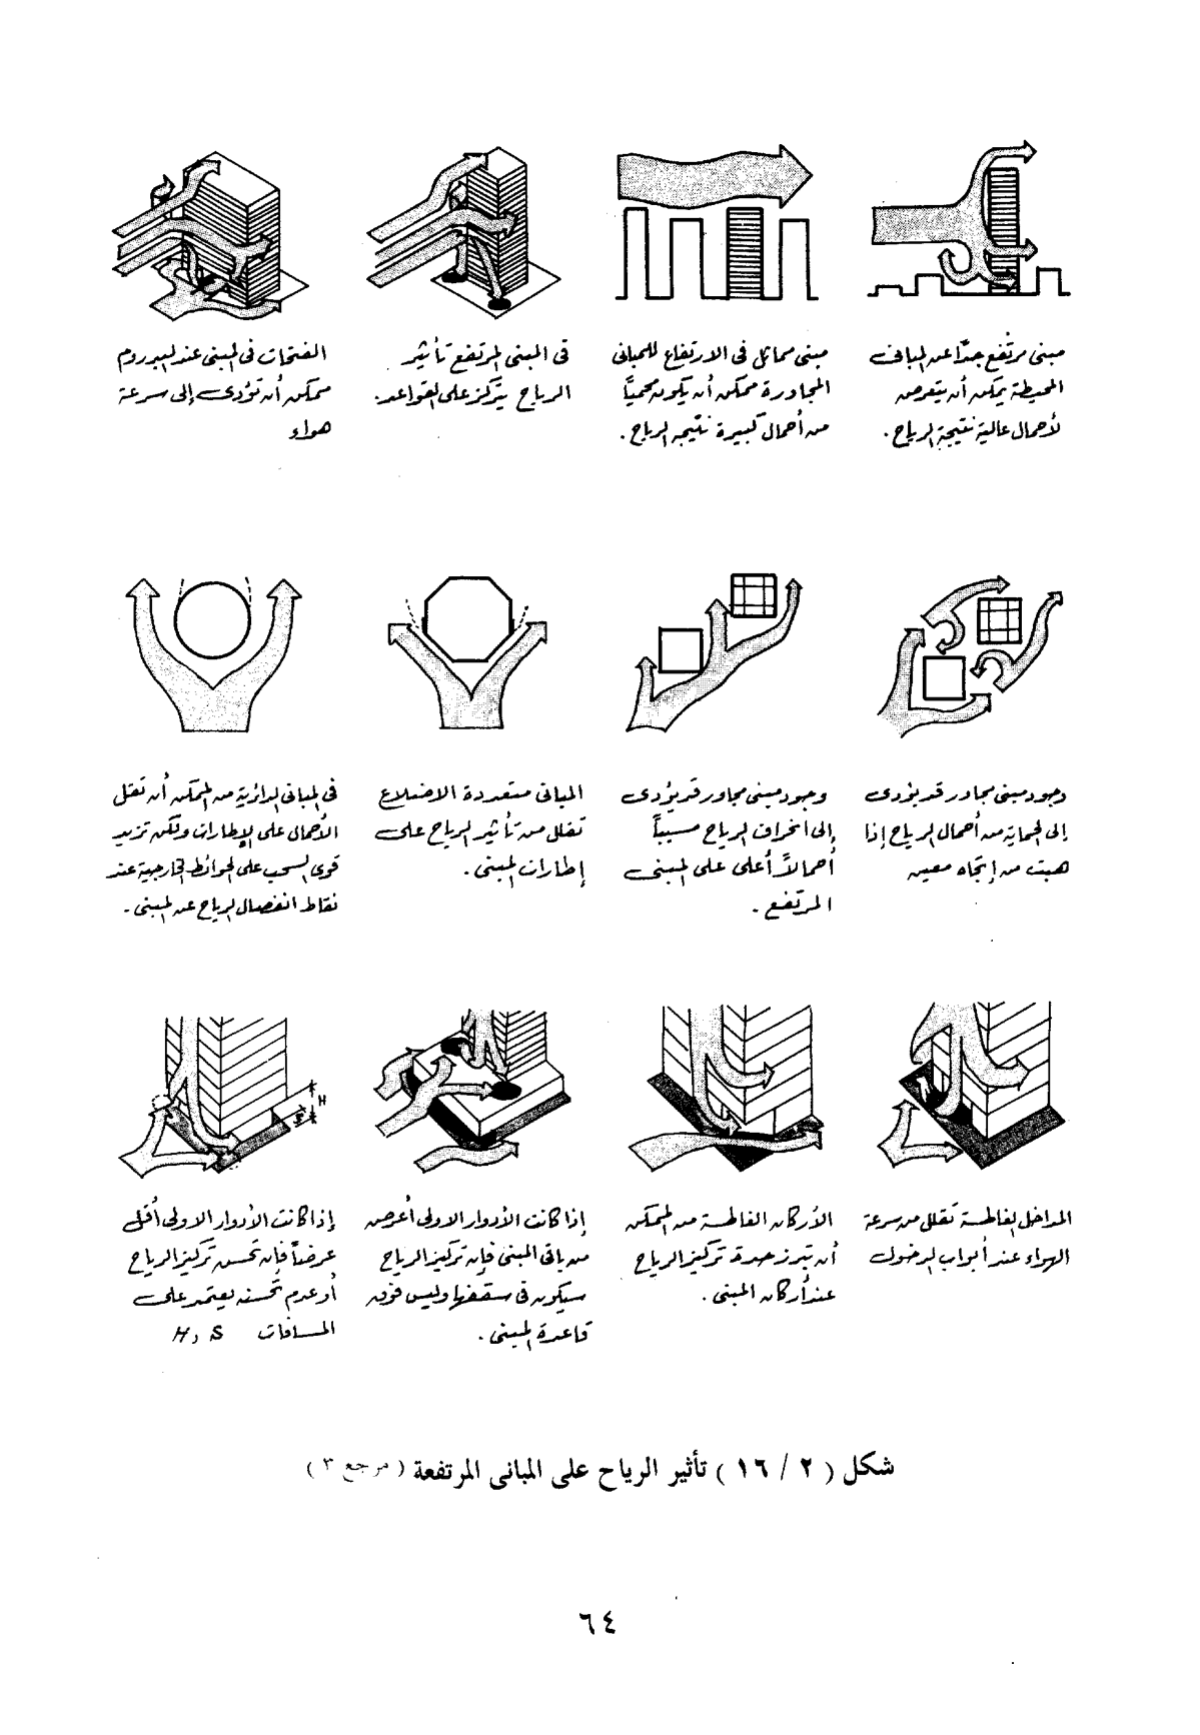 مبنى مرتفع جدًا عن المبانى
المحيطة يمكن أن يتعرض
لأحمال عالية نتيجة الرياح .
مبنى مماثل فى الارتفاع للمبانى
المجاورة ممكن أن يكون محميًا
من أحمال كبيرة نتيجه الرياح .
فى المبنى المرتفع تأثير
الرياح يتركز على القواعد .
الفتحات فى المبنى عند البدروم
ممكن أن تؤدى إلى سرعة
هواء
وجود مبنى مجاور قد يؤدى
إلى الحماية من أحمال الرياح إذا
هبت من إتجاه معين
وجود مبنى مجاور قد يؤدى
إلى انحراف الرياح مسببًا
أحمالاً أعلى على المبنى
المرتفع .
المبانى متعددة الاضلاع
تقلل من تأثير الرياح على
إطارات المبنى .
فى المبانى الدائرية من الممكن أن تقل
الأحمال على الإطارات ولكن تزيد
قوى السحب على الحوائط الخارجية عند
نقاط انفصال الرياح عن المبنى .
H
المداخل الغاطسة تقلل من سرعة
الهواء عند أبواب الدخول
الأركان الغاطسة من الممكن
أن تبرز حدة تركيز الرياح
عند أركان المبنى .
إذا كانت الأدوار الاولى أعرض
من باقى المبنى فإن تركيز الرياح
سيكون فى سقفها وليس فوق
قاعدة المبنى .
إذا كانت الأدوار الاولى أقل
عرضاً فإن تحسن تركيز الرياح
أو عدم تحسنه يعتمد على
المسافات H , S
شكل ( ٢ / ١٦ ) تأثير الرياح على المبانى المرتفعة ( مرجع ٣ )
٦٤